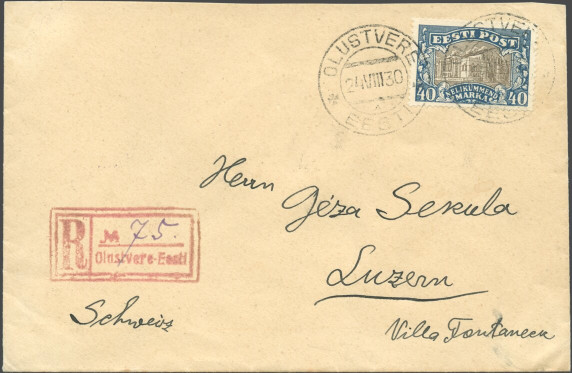 OLUSTVERE
24 VIII 30
EESTI
EESTI POST
40 NELIKÜMMEND MARKA 40
OLUSTVERE
EESTI
Herrn Géza Sekula
R № 75.
Olustvere-Eesti
Luzern
Schweiz
Villa Fontaneca